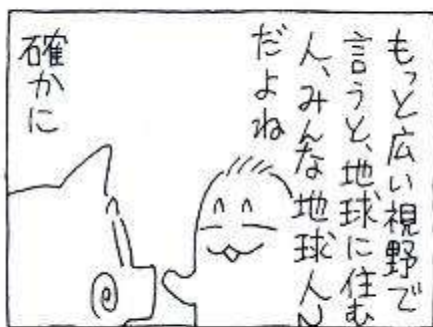 もっと広い視野で
言うと、地球に住む
人、みんな地球人
だよね
確かに